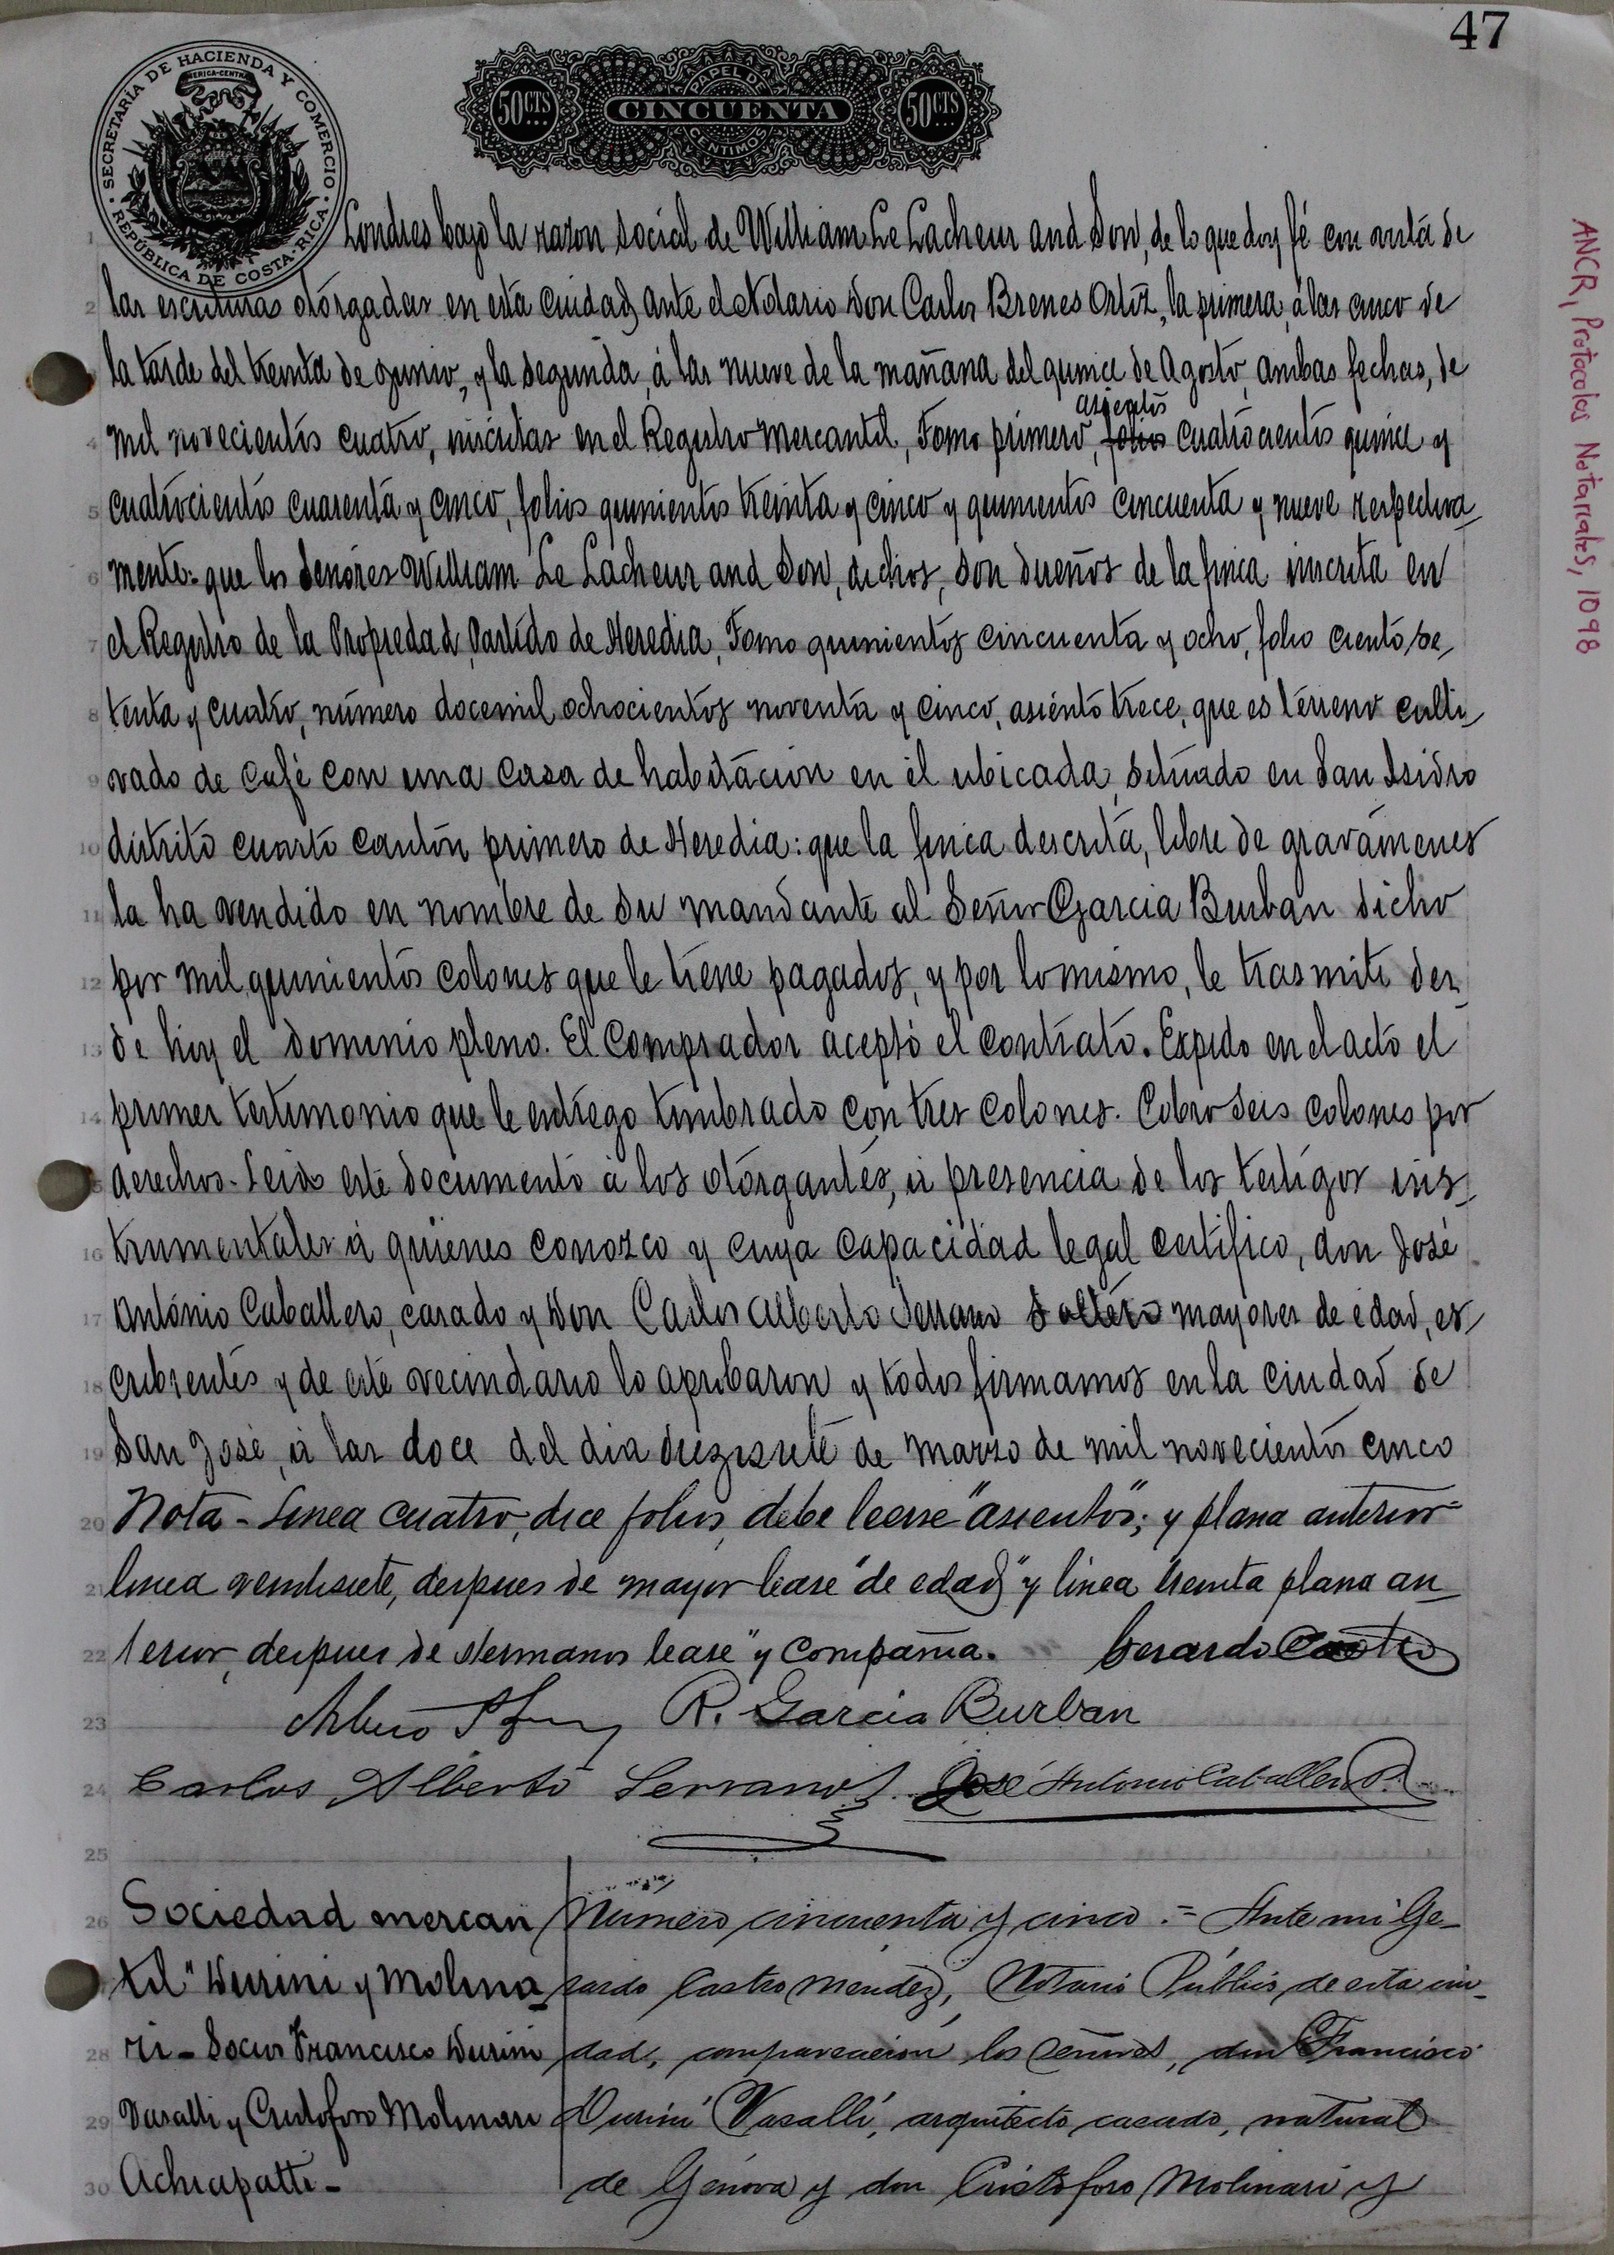 47
SECRETARÍA DE HACIENDA Y COMERCIO
REPÚBLICA DE COSTA-RICA
AMERICA-CENTRAL
PAPEL DE
50 CTS CINCUENTA 50 CTS
CENTIMOS
ANCR, Protocolos Notariales, 1098
1 Londres bajo la razon social de William Le Lacheur and Son, de lo que doy fé con vista de
2 las escrituras otorgadas en esta ciudad ante el Notario Don Carlos Brenes Ortiz, la primera, á las cinco de
la tarde del treinta de junio, y la segunda, á las nueve de la mañana del quince de Agosto, ambas fechas, de
asientos
4 mil novecientos cuatro, inscritas en el Registro Mercantil, Tomo primero, folios cuatrocientos quince y
5 cuatrocientos cuarenta y cinco, folios quinientos treinta y cinco y quinientos cincuenta y nueve respectiva
6 mente: que los Señores William Le Lacheur and Son, dichos, son dueños de la finca inscrita en
7 el Registro de la Propiedad, Partido de Heredia, Tomo quinientos cincuenta y ocho, folio ciento se
8 tenta y cuatro, número docemil ochocientos noventa y cinco, asiento trece, que es terreno culti
9 vado de café con una casa de habitación en él ubicada, situado en San Isidro
10 distrito cuarto cantón primero de Heredia: que la finca descrita, libre de gravámenes
11 la ha vendido en nombre de su mandante al Señor Garcia Burban dicho
12 por mil quinientos colones que le tiene pagados, y por lo mismo, le trasmite des
13 de hoy el dominio pleno. El Comprador aceptó el contrato. Expido en el acto el
14 primer testimonio que le entrego timbrado con tres colones. Cobro seis colones por
15 derechos. Leido este documento á los otorgantes, á presencia de los testigos ins
16 trumentales á quienes conozco y cuya capacidad legal certifico, don José
17 Antonio Caballero, casado y Don Carlos Alberto Serrano soltero mayores de edad, es
18 cribientes y de este vecindario lo aprobaron y todos firmamos en la ciudad de
19 San José, á las doce del dia diezisiete de marzo de mil novecientos cinco
20 Nota - Linea cuatro, dice folios, debe leerse "asientos"; y plana anterior
21 linea veintisiete, despues de mayor lease "de edad" y linea treinta plana an
22 terior, despues de Hermanos lease "y Compañia. Gerardo Castro
23 R. Garcia Burban
24 Carlos Alberto Serrano José Antonio Caballero P.
25
26 Sociedad mercan Número cincuenta y cinco.= Ante mi Ge-
til "Durini y Molina rardo Castro Mendez, Notario Público de esta ciu-
28 ri - Socios Francisco Durini dad, comparecieron los señores, don Francisco
29 Vasalli y Cristoforo Molinari Durini Vasallí, arquitecto casado, natural
30 Achiapatti - de Génova y don Cristóforo Molinari y